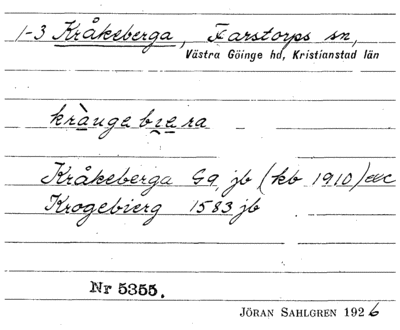 1-3 Kråkeberga, Farstorps sn,
Västra Göinge hd, Kristianstad län
kràugebi̯era
Kråkeberga Gg, jb (kb 1910) etc
Krogebierg 1583 jb
Nr 5355.
JÖRAN SAHLGREN 1926